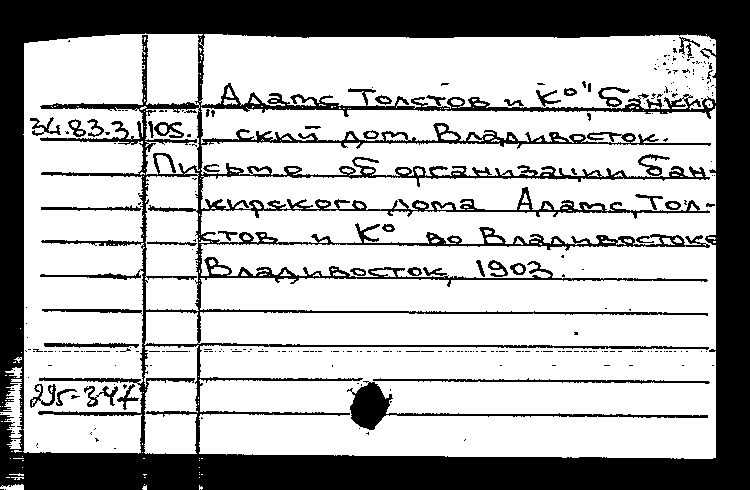 "Адамс, Толстов и К°", банкир
34.83.3.1105. ский дом. Владивосток.
Письмо об организации бан-
кирского дома Адамс, Тол-
стов и К° во Владивостоке
Владивосток, 1903.
295-347